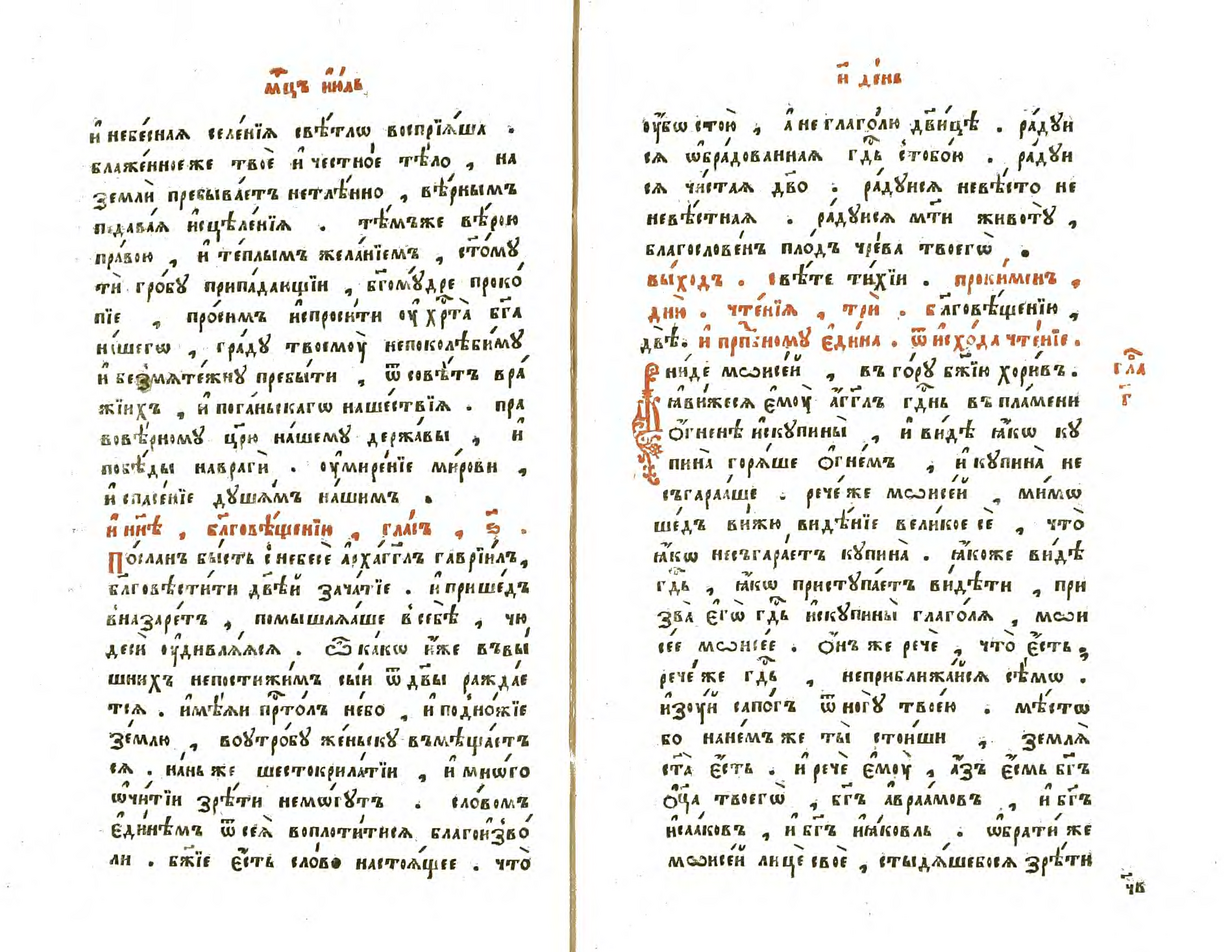 мц҃ъ ию́ль
и҆ небе́сная селе́нїꙗ свѣ́тлѡ воспрїѧ́ша .
блаже́нное же твоѐ и҆ честно́е тѣ́ло , на
землѝ пребыва́етъ нетлѣ́нно , вѣ́рнымъ
подава́ѧ и҆сцѣле́нїѧ . тѣ́мъже вѣ́рою
пра́вою , и҆ те́плымъ жела́нїемъ , ст҃о́мꙋ
тѝ гро́бꙋ припа́дающїи , бг҃омꙋ́дре проко́
пїе , про́симъ испроси́ти оу҆ хрⷭ҇та̀ бг҃а
на́шегѡ , гра́дꙋ твоемоу̀ непоколѣби́мꙋ
и҆ безмѧте́жнꙋ пребы́ти , ѿ совѣ́тъ вра́
жїихъ , и҆ пога́ньскагѡ наше́ствїѧ . пра
вовѣ́рномꙋ цр҃ю̀ на́шемꙋ держа́вы , и҆
побѣ́ды на врагѝ . оу҆мире́нїе ми́рови ,
и҆ спасе́нїе дꙋша́мъ на́шимъ .
и҆ нн҃ѣ , бл҃говѣ́щенїю , гла́съ , ѕ҃ .
По́сланъ бы́сть с небесѐ а҆рха́гг҃лъ гаврїи́лъ ,
бл҃говѣсти́ти дв҃ѣй зача́тїе . и҆ прише́дъ
в назаре́тъ , помышлѧ́ше в себѣ̀ , чю
десѝ оу҆дивлѧ́ѧсѧ . Ѽ ка́кѡ и҆́же въ вы́
шнихъ непостижи́мъ сы́и ѿ дв҃ы ражда́е
тсѧ . и҆мѣ́ѧи прⷭ҇то́лъ не́бо , и҆ подно́жїе
зе́млю , во оутро́бꙋ же́ньскꙋ въмѣща́етъ
сѧ . на́нь же шестокрила́тїи , и҆ мно́го
ѡ҆чи́тїи зрѣ́ти немо́гꙋтъ . сло́вомъ
є҆ди́нѣмъ ѿ сеѧ̀ воплоти́тисѧ благоизво́
ли . бж҃їе є҆́сть сло́во настоѧ́щее . что̀
и҃ де́нь
оу҆́бѡ стою̀ , а҆ не глаго́лю дв҃и́цѣ . ра́дꙋи
сѧ ѡ҆бра́дованнаѧ гдⷭ҇ь с тобо́ю . ра́дꙋи
сѧ чи́стаѧ дв҃о . ра́дꙋисѧ невѣ́сто не
невѣ́стнаѧ . ра́дꙋисѧ мт҃и животꙋ̀ ,
благослове́нъ пло́дъ чре́ва твоегѡ̀ .
вы́ходъ . свѣ́те ти́хїи . проки́менъ ,
дню̀ . чте́нїѧ , трѝ . бл҃говѣ́щенїю ,
двѣ̀ . и҆ прⷣпо́номꙋ є҆ди́на . ѿ и҆схо́да чте́нїе .
Вниде мѡисе́й , въ го́рꙋ бж҃їю хори́въ .
гла
г҃
ꙗ҆ви́жесѧ є҆моу̀ а҆́гг҃лъ гдⷭ҇нь в пла́мени
ѻ҆́гненѣ и҆скꙋпины̀ , и҆ ви́дѣ ꙗ҆́кѡ кꙋ
пина̀ горѧ́ше ѻ҆гне́мъ , и҆ кꙋпина̀ не
съгара́аше . рече́ же мѡисе́й , ми́мѡ
ше́дъ ви́жю видѣ́нїе вели́кое сѐ , что̀
ꙗ҆́кѡ несъгара́етъ кꙋпина̀ . ꙗ҆́коже ви́дѣ
гдⷭ҇ь , ꙗ҆́кѡ пристꙋпа́етъ ви́дѣти , при
зва̀ є҆го̀ гдⷭ҇ь и҆скꙋпины̀ глаго́лѧ , мѡи
се́е мѡисе́е . ѻ҆́нъ же речѐ , что̀ є҆́сть ;
рече́ же гдⷭ҇ь , неприближа́йсѧ сѣ́мѡ .
и҆зꙋ́й сапо́гъ ѿ но́гꙋ твоє́ю . мѣ́сто
бо на не́мъ же ты̀ стои́ши , землѧ̀
ст҃а̀ є҆́сть . и҆ речѐ є҆моу̀ , а҆́зъ є҆́смь бг҃ъ
ѻ҆ц҃а̀ твоегѡ̀ , бг҃ъ а҆враа́мовъ , и҆ бг҃ъ
и҆саа́ковъ , и҆ бг҃ъ и҆а́ковль . ѡ҆брати́ же
мѡисе́й лицѐ своѐ , стыдѧ́шебосѧ зрѣ́ти
чв҃